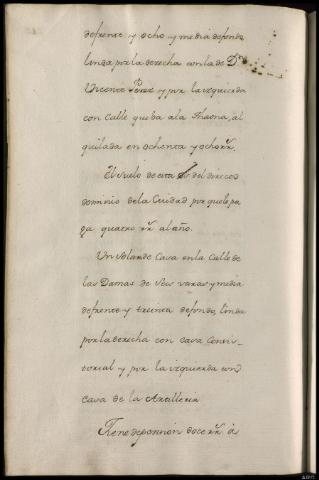 defrente y ocho y media defondo
linda por la derecha con la de Dn.
Vicente Perez y por la izquierda
con Calle que ba a la Thaona, al
quilada en ochenta y ocho rr.
El suelo de esta es del direcco
dominio de la Ciudad por que le pa
ga quatro rr. al año.
Un Solar de Casa en la Calle de
las Damas de Seis varas y media
defrente y treinta defondo, linda
por la derecha con casa Consis-
torial y por la izquierda con
Casa de la Artilleria
Tiene de pension doce rr. a